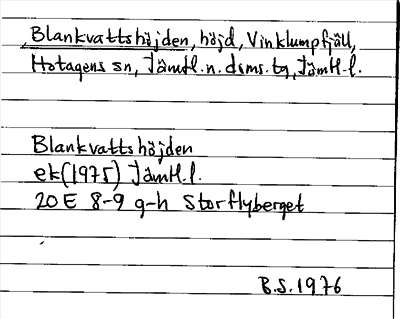 Blankvattshöjden, höjd, Vinklumpfjäll,
Hotagens sn, Jämtl.n.dsms.tg, Jämtl.l.
Blankvattshöjden
ek(1975) Jämtl.l.
20E 8-9 g-h Storflyberget
B.S. 1976